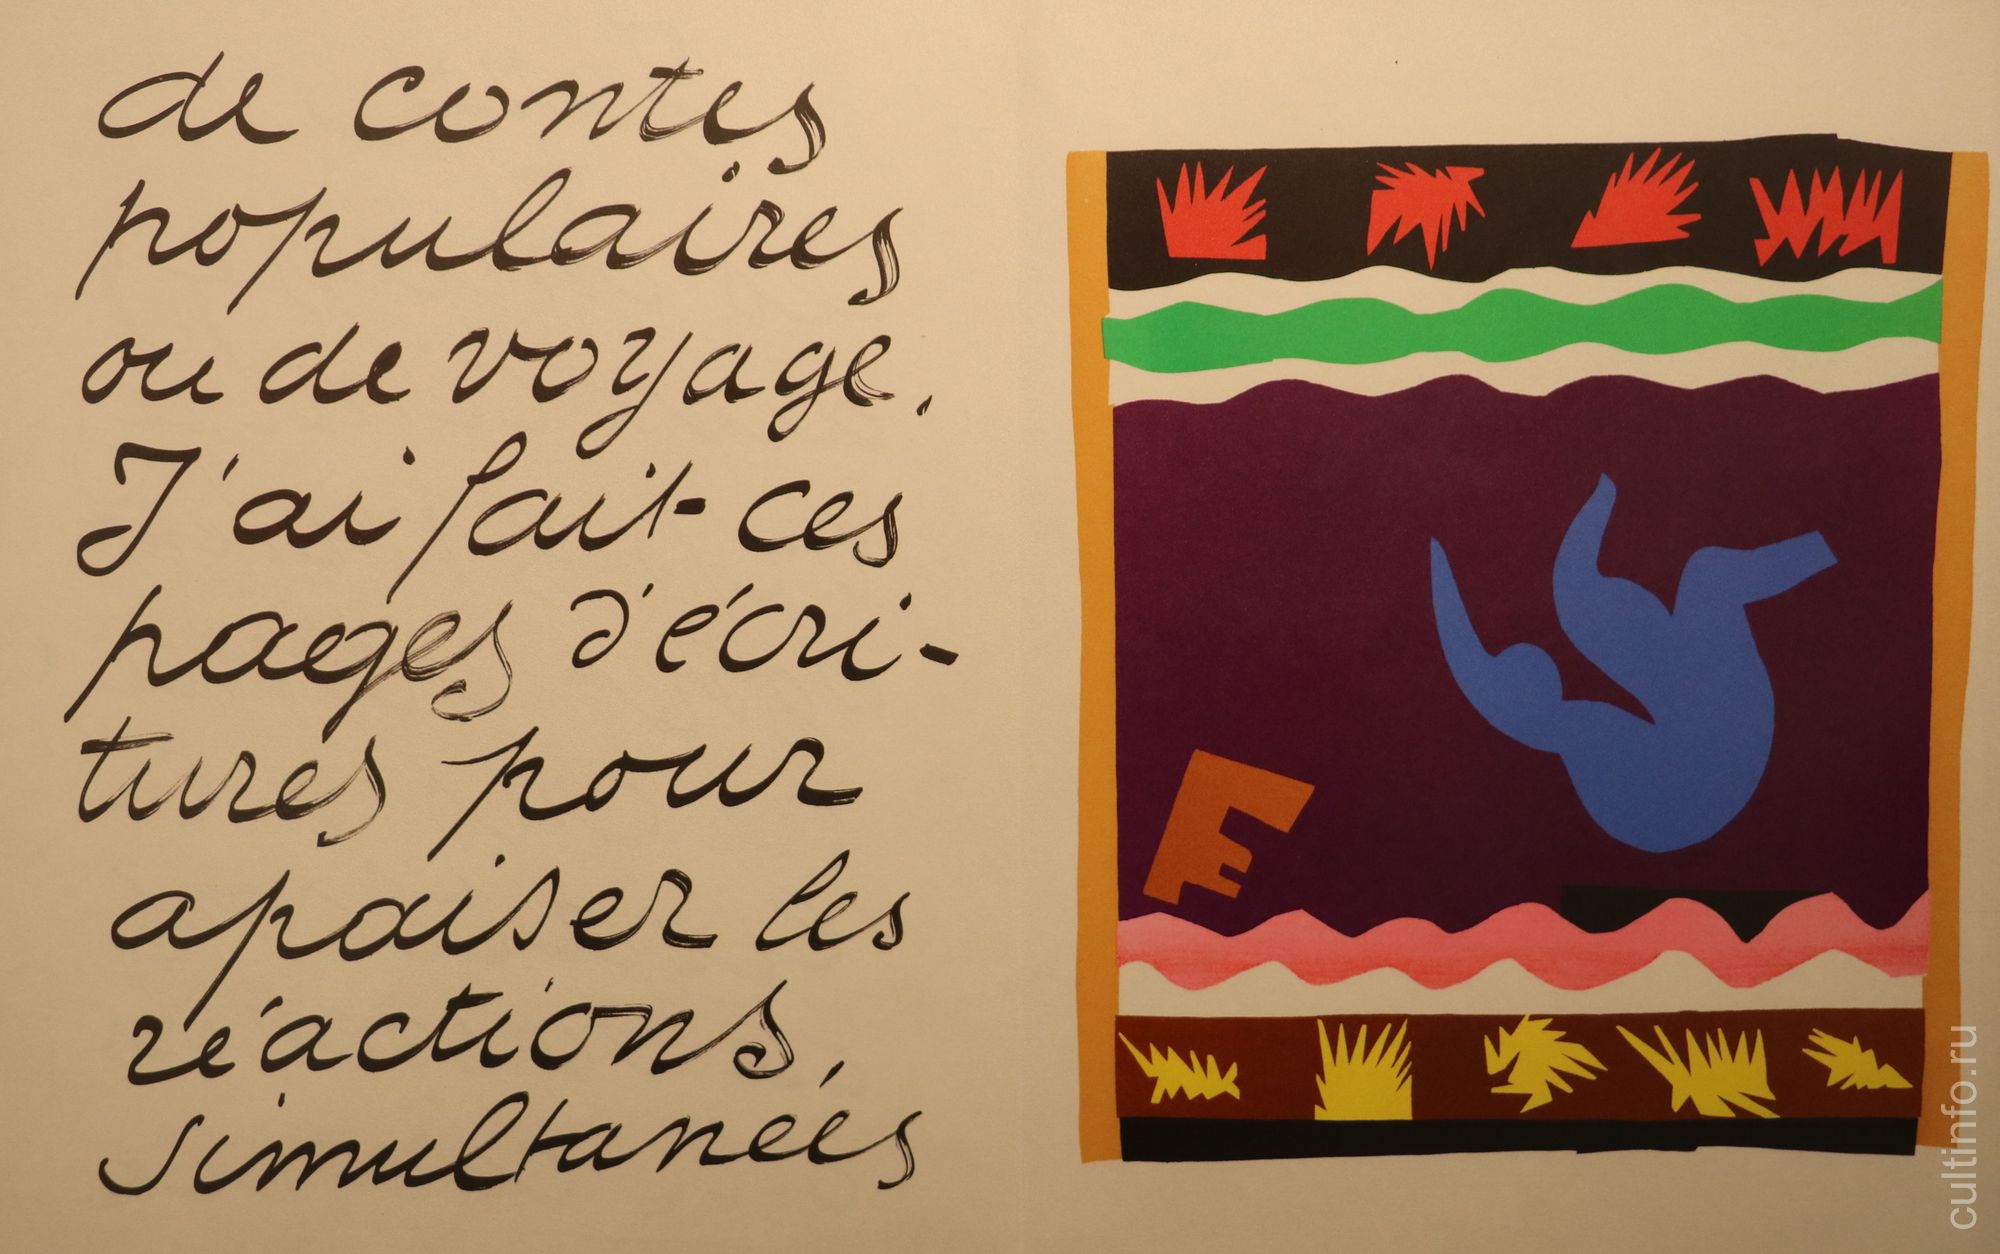 de contes
populaires
ou de voyage.
J'ai fait ces
pages d'écri-
tures pour
apaiser les
réactions
simultanées
cultinfo.ru